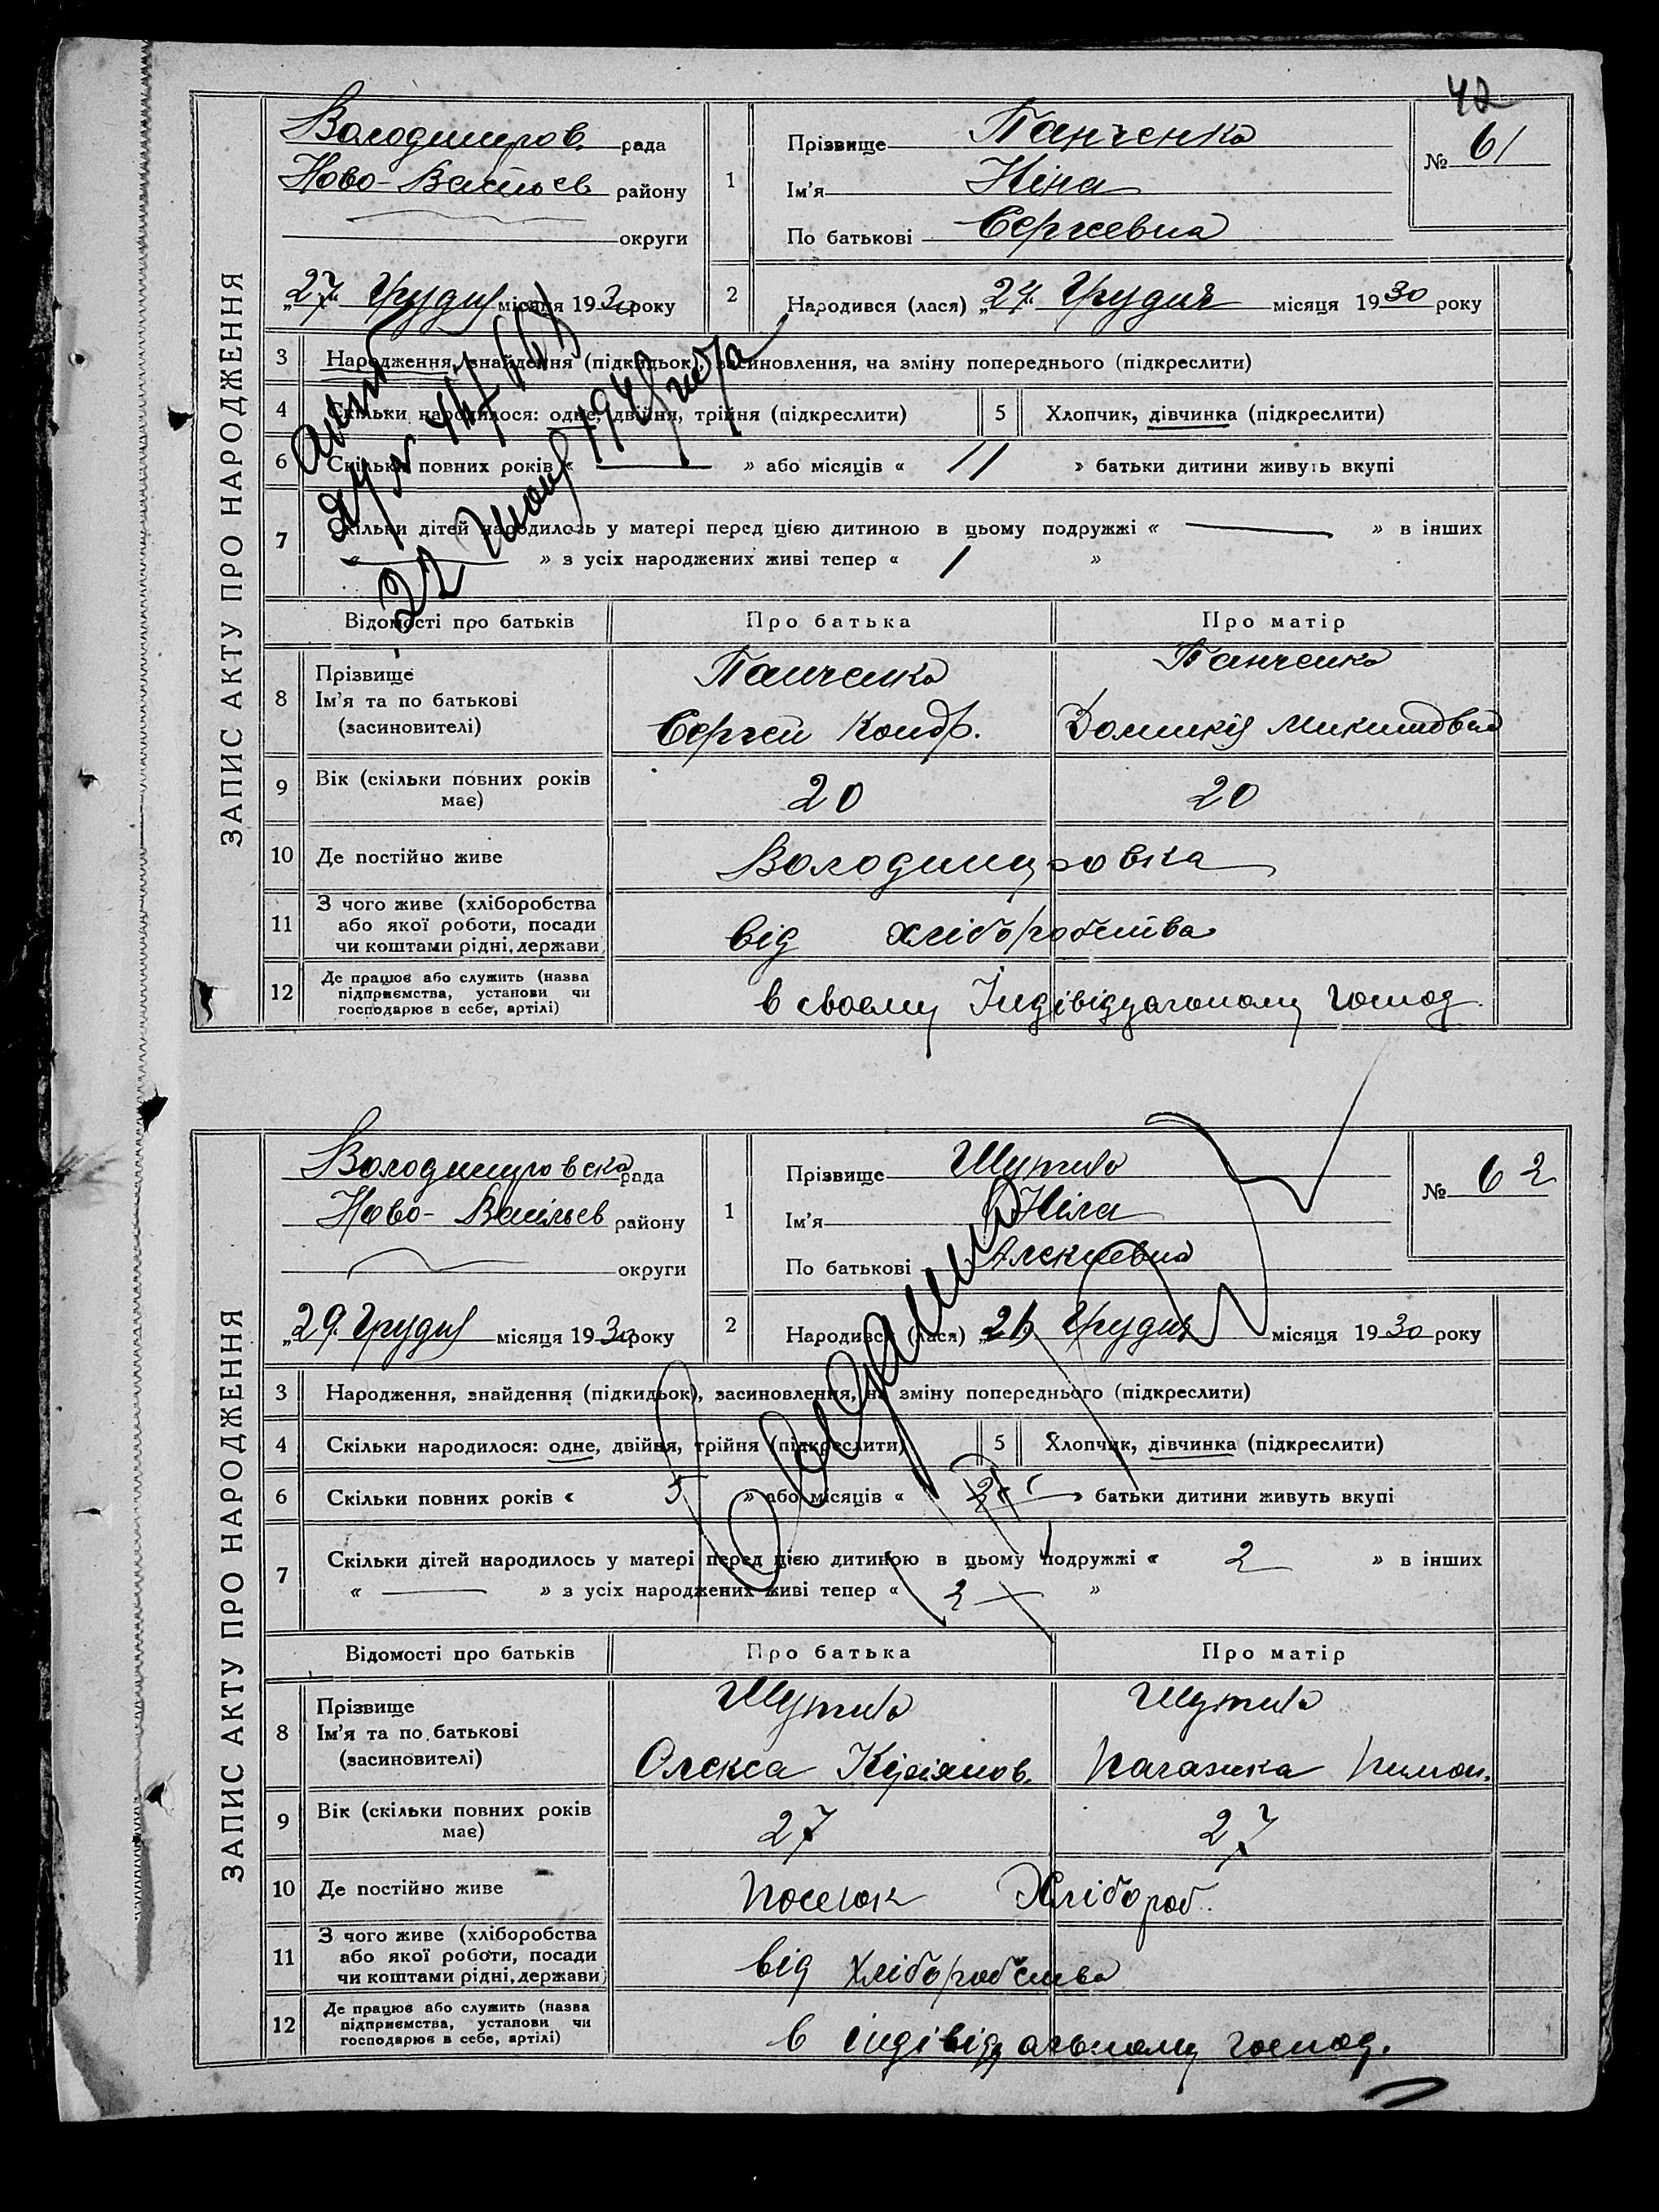 42
ЗАПИС АКТУ ПРО НАРОДЖЕННЯ
Володимиров. рада
Ново-Васильєв району
округи
„27" Грудня місяця 1930 року
1
Прізвище Панченко
Ім'я Ніна
По батькові Сергеевна
№ 61
2 Народився (лася) „24" Грудня місяця 1930 року
3 Народження, знайдення (підкидьок), засиновлення, на зміну попереднього (підкреслити)
4 Скільки народилося: одне, двійня, трійня (підкреслити) 5 Хлопчик, дівчинка (підкреслити)
6 Скільки повних років « — » або місяців « 11 » батьки дитини живуть вкупі
7 Скільки дітей народилось у матері перед цією дитиною в цьому подружжі « — » в інших
« — » з усіх народжених живі тепер « 1 »
22
Відомості про батьків Про батька Про матір
8 Прізвище Панченко Панченко
Ім'я та по батькові
(засиновителі) Сергей Кондр. Домникія
9 Вік (скільки повних років має) 20 20
10 Де постійно живе Володимировка
11 З чого живе (хліборобства або якої роботи, посади чи коштами рідні, держави) від хліборобства
12 Де працює або служить (назва підприємства, установи чи господарює в себе, артілі) в своему Індівідуальному господ.
ЗАПИС АКТУ ПРО НАРОДЖЕННЯ
Володимировска рада
Ново-Васильев району
округи
„29" Грудня місяця 1930 року
1
Прізвище
Ім'я
По батькові
№ 62
2 Народився (лася) Грудня місяця 1930 року
3 Народження, знайдення (підкидьок), засиновлення, на зміну попереднього (підкреслити)
4 Скільки народилося: одне, двійня, трійня (підкреслити) 5 Хлопчик, дівчинка (підкреслити)
6 Скільки повних років « 5 » або місяців « » батьки дитини живуть вкупі
7 Скільки дітей народилось у матері перед цією дитиною в цьому подружжі « 2 » в інших
« — » з усіх народжених живі тепер « 2 »
Відомості про батьків Про батька Про матір
8 Прізвище
Ім'я та по батькові
(засиновителі) Олекса
9 Вік (скільки повних років має) 27 27
10 Де постійно живе поселок Хлібороб.
11 З чого живе (хліборобства або якої роботи, посади чи коштами рідні, держави) від хліборобства
12 Де працює або служить (назва підприємства, установи чи господарює в себе, артілі) в індівідуальному господ.